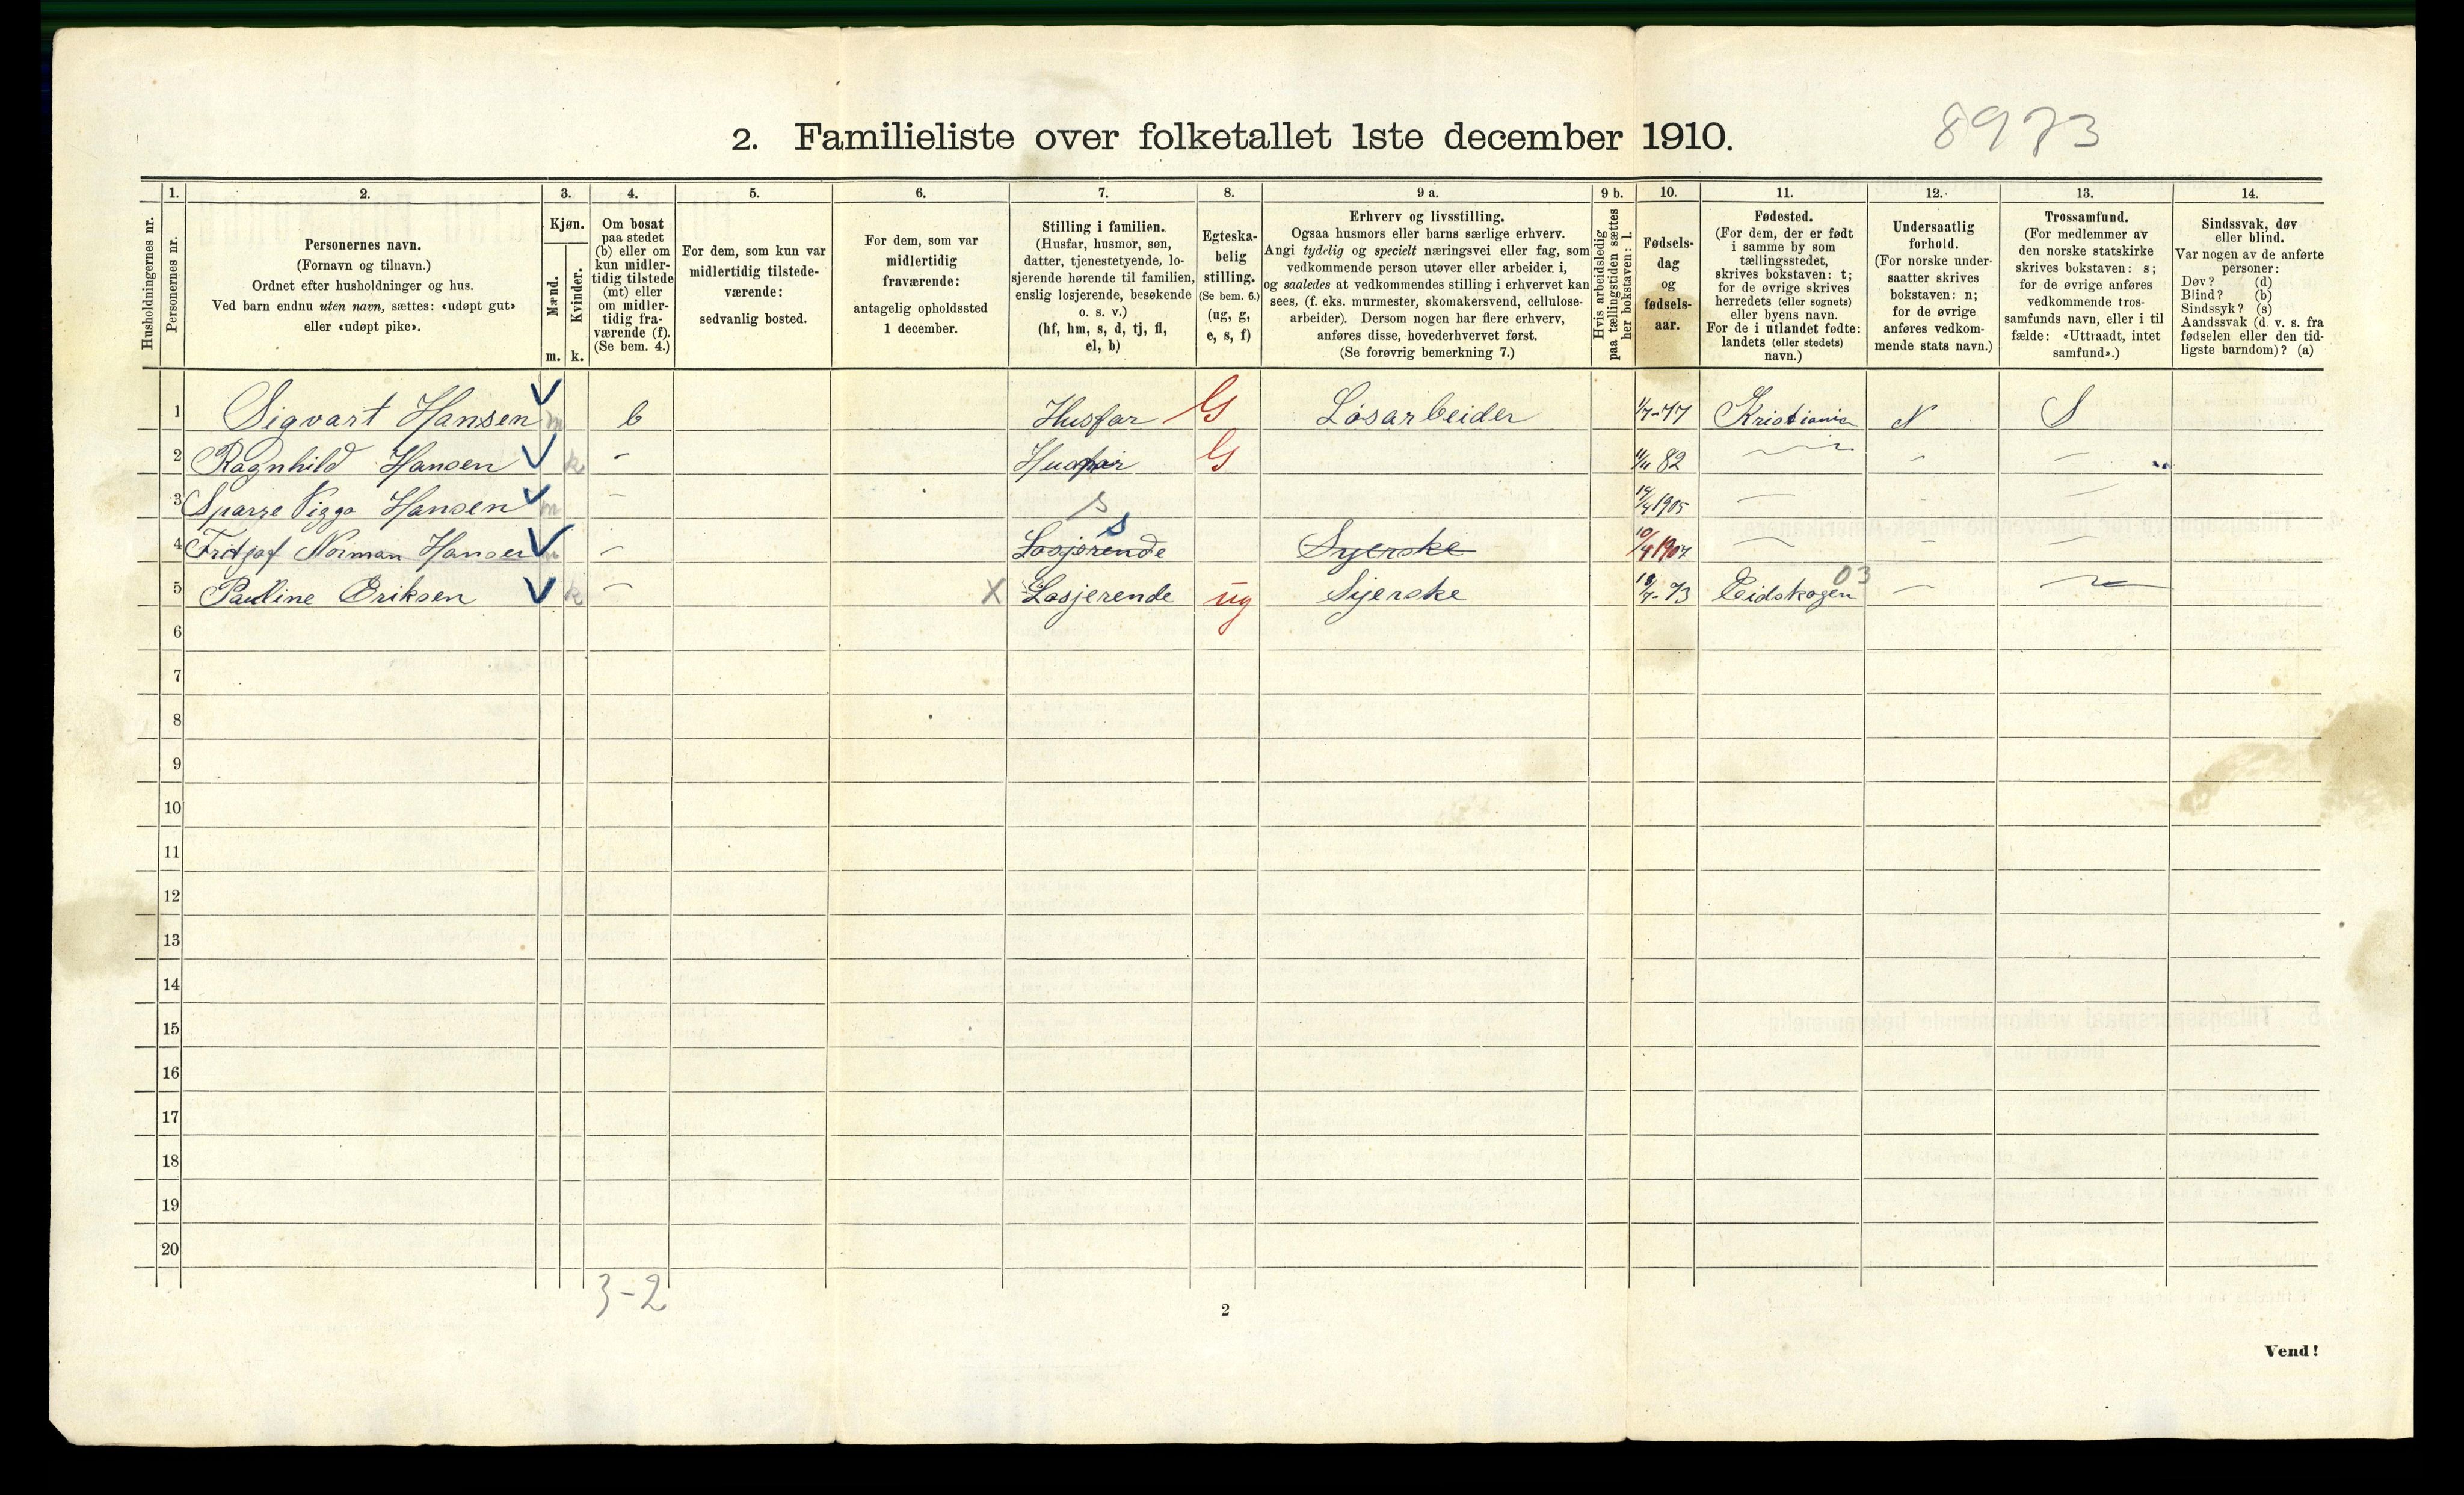 8973
2. Familieliste over folketallet 1ste december 1910.
1. 2. 3. 4. 5. 6. 7. 8. 9 a. 9 b. 10. 11. 12. 13. 14.
Husholdningernes nr.
Personernes nr.
Personernes navn.
(Fornavn og tilnavn.)
Ordnet efter husholdninger og hus.
Ved barn endnu uten navn, sættes: «udøpt gut»
eller «udøpt pike».
Kjøn.
Mænd.
m.
Kvinder.
k.
Om bosat
paa stedet
(b) eller om
kun midler-
tidig tilstede
(mt) eller
om midler-
tidig fra-
værende (f).
(Se bem. 4.)
For dem, som kun var
midlertidig tilstede-
værende:
sedvanlig bosted.
For dem, som var
midlertidig
fraværende:
antagelig opholdssted
1 december.
Stilling i familien.
(Husfar, husmor, søn,
datter, tjenestetyende, lo-
sjerende hørende til familien,
enslig losjerende, besøkende
o. s. v.)
(hf, hm, s, d, tj, fl,
el, b)
Egteska-
belig
stilling.
(Se bem. 6.)
(ug, g,
e, s, f)
Erhverv og livsstilling.
Ogsaa husmors eller barns særlige erhverv.
Angi tydelig og specielt næringsvei eller fag, som
vedkommende person utøver eller arbeider i,
og saaledes at vedkommendes stilling i erhvervet kan
sees, (f. eks. murmester, skomakersvend, cellulose-
arbeider). Dersom nogen har flere erhverv,
anføres disse, hovederhvervet først.
(Se forøvrig bemerkning 7.)
Hvis arbeidsledig
paa tællingstiden sættes
her bokstaven: l.
Fødsels-
dag
og
fødsels-
aar.
Fødested.
(For dem, der er født
i samme by som
tællingsstedet,
skrives bokstaven: t;
for de øvrige skrives
herredets (eller sognets)
eller byens navn.
For de i utlandet fødte:
landets (eller stedets)
navn.)
Undersaatlig
forhold.
(For norske under-
saatter skrives
bokstaven: n;
for de øvrige
anføres vedkom-
mende stats navn.)
Trossamfund.
(For medlemmer av
den norske statskirke
skrives bokstaven: s;
for de øvrige anføres
vedkommende tros-
samfunds navn, eller i til
fælde: «Uttraadt, intet
samfund».)
Sindssvak, døv
eller blind.
Var nogen av de anførte
personer:
Døv? (d)
Blind? (b)
Sindssyk? (s)
Aandssvak (d. v. s. fra
fødselen eller den tid-
ligste barndom)? (a)
1 Sigvart Hansen m b Husfar G Løsarbeider 1/7-77 Kristiania N S
2 Ragnhild Hansen k - G 82 - -
3 Sparre Viggo Hansen m - s 1905 - - -
4 Fritjof Norman Hansen m - Losjerende s Syerske 10/4 1907 - - -
5 Pauline Eriksen k - X Losjerende ug Syerske 73 Eidskogen 03 - -
6
7
8
9
10
11
12
13
14
15
16
17
18
19
20
3-2
2
Vend!